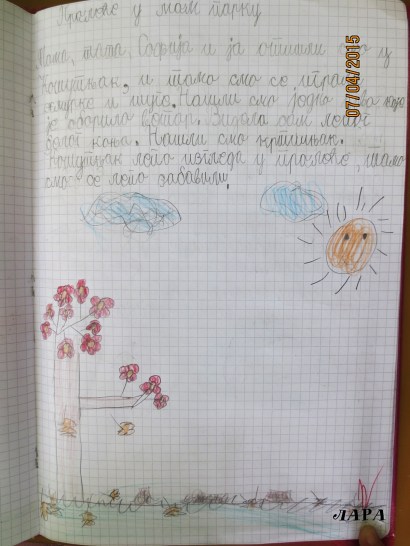 Пролеће у мом парку
Мама, тата, Софија и ја отишли смо у
Кошутњак, и тамо смо се играли
жмурке и шуге. Нашли смо једно
је оборио ветар. Видела сам лепог
белог коња. Нашли смо кртињак.
Кошутњак лепо изгледа у пролеће, тамо
смо се лепо забавили.
07/04/2015
ЛАРА